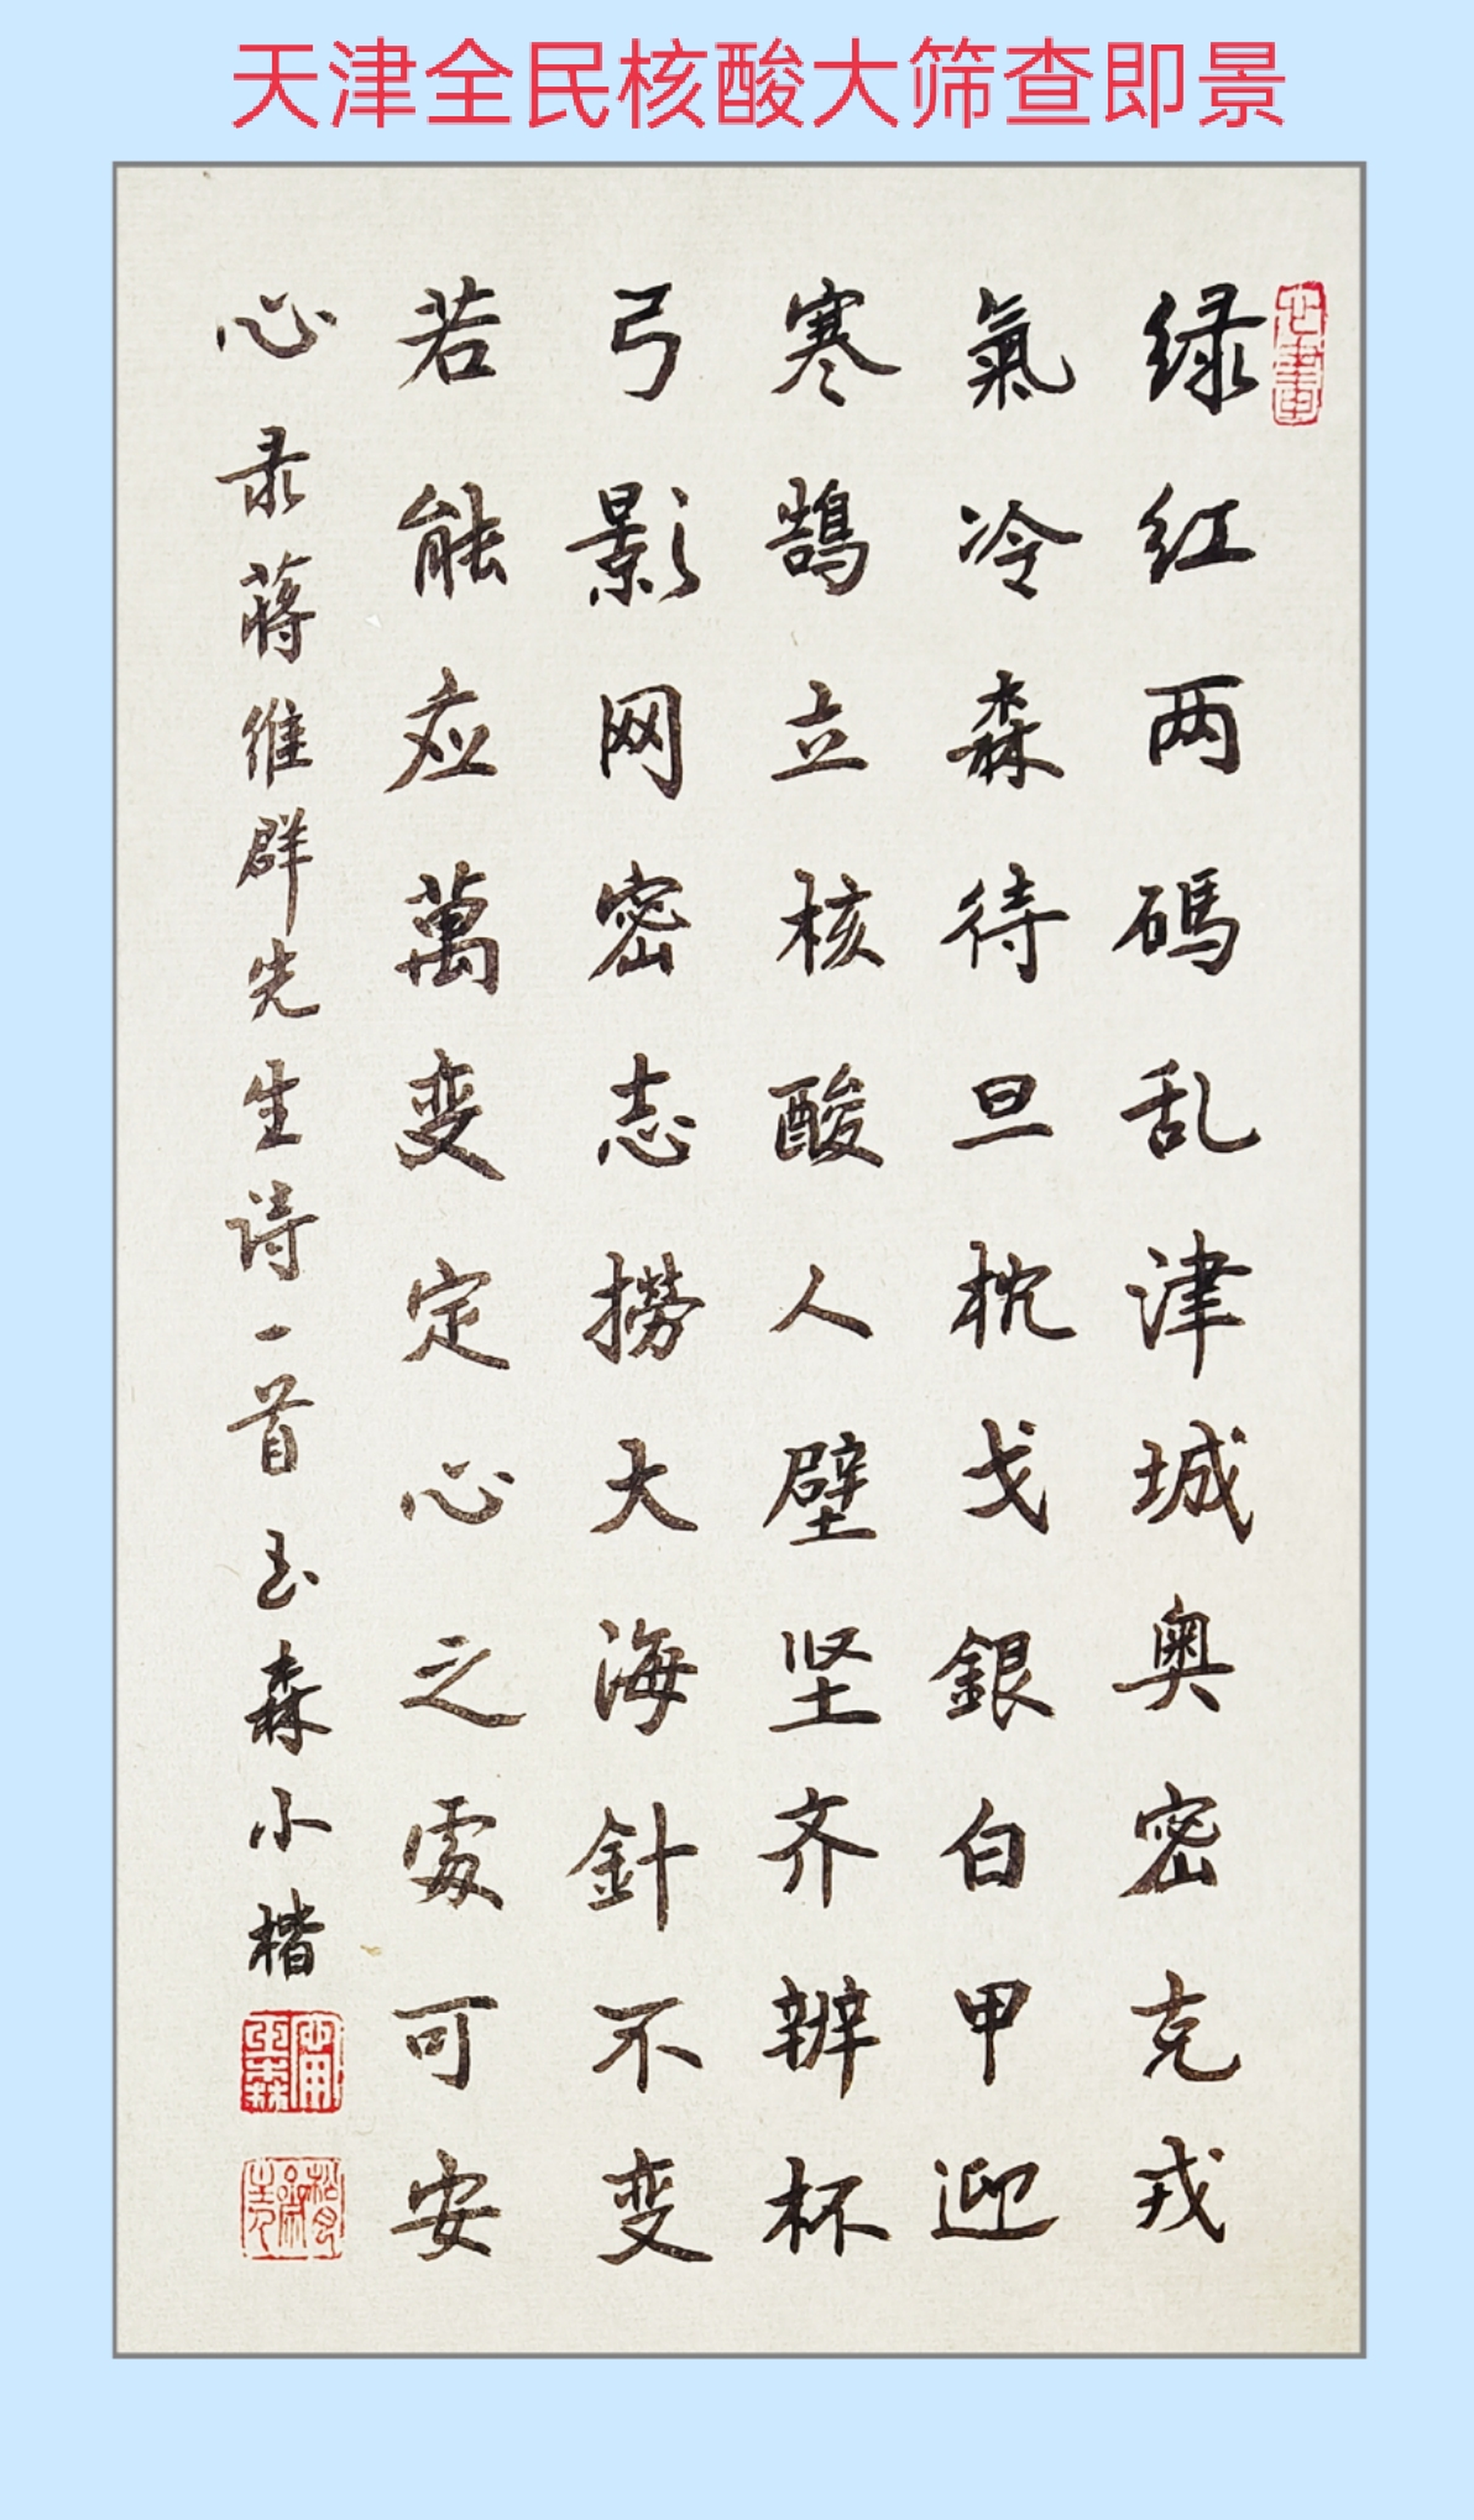 天津全民核酸大筛查即景
绿红两碼乱津城奥密克戎
氣冷森待旦枕戈銀白甲迎
寒鵠立核酸人壁坚齐辨杯
弓影网密志撈大海針不变
若能应萬变定心之處可安
心录蒋维群先生诗一首玉森小楷